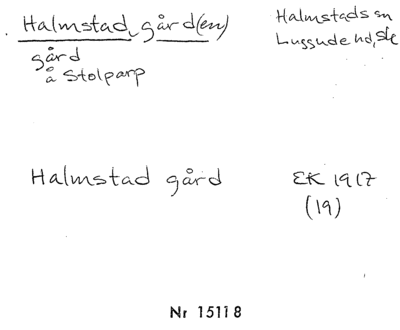 Halmstad, gård(en)
Halmstads sn
Luggude hd, Sk
gård
å Stolparp
Halmstad gård
EK 1917
(19)
Nr 15118